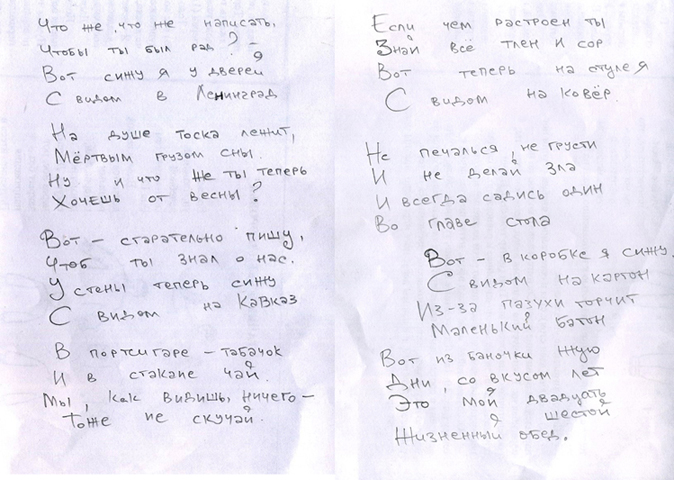 Что же, что же написать,
Чтобы ты был рад? –
Вот сижу я у дверей
С видом в Ленинград
На душе тоска лежит,
Мёртвым грузом сны.
Ну и что же ты теперь
Хочешь от весны?
Вот – старательно пишу,
Чтоб ты знал о нас.
У стены теперь сижу
С видом на Кавказ
В портсигаре – табачок
И в стакане чай.
Мы, как видишь, ничего –
Тоже не скучай.
Если чем растроен ты
Знай всё тлен и сор
Вот теперь на стуле я
С видом на ковёр.
Не печалься, не грусти
И не делай зла
И всегда садись один
Во главе стола
Вот – в коробке я сижу.
С видом на картон
Из-за пазухи торчит
Маленький батон
Вот из баночки жую
Дни, со вкусом лет
Это мой двадцать
шестой
Жизненный обед.